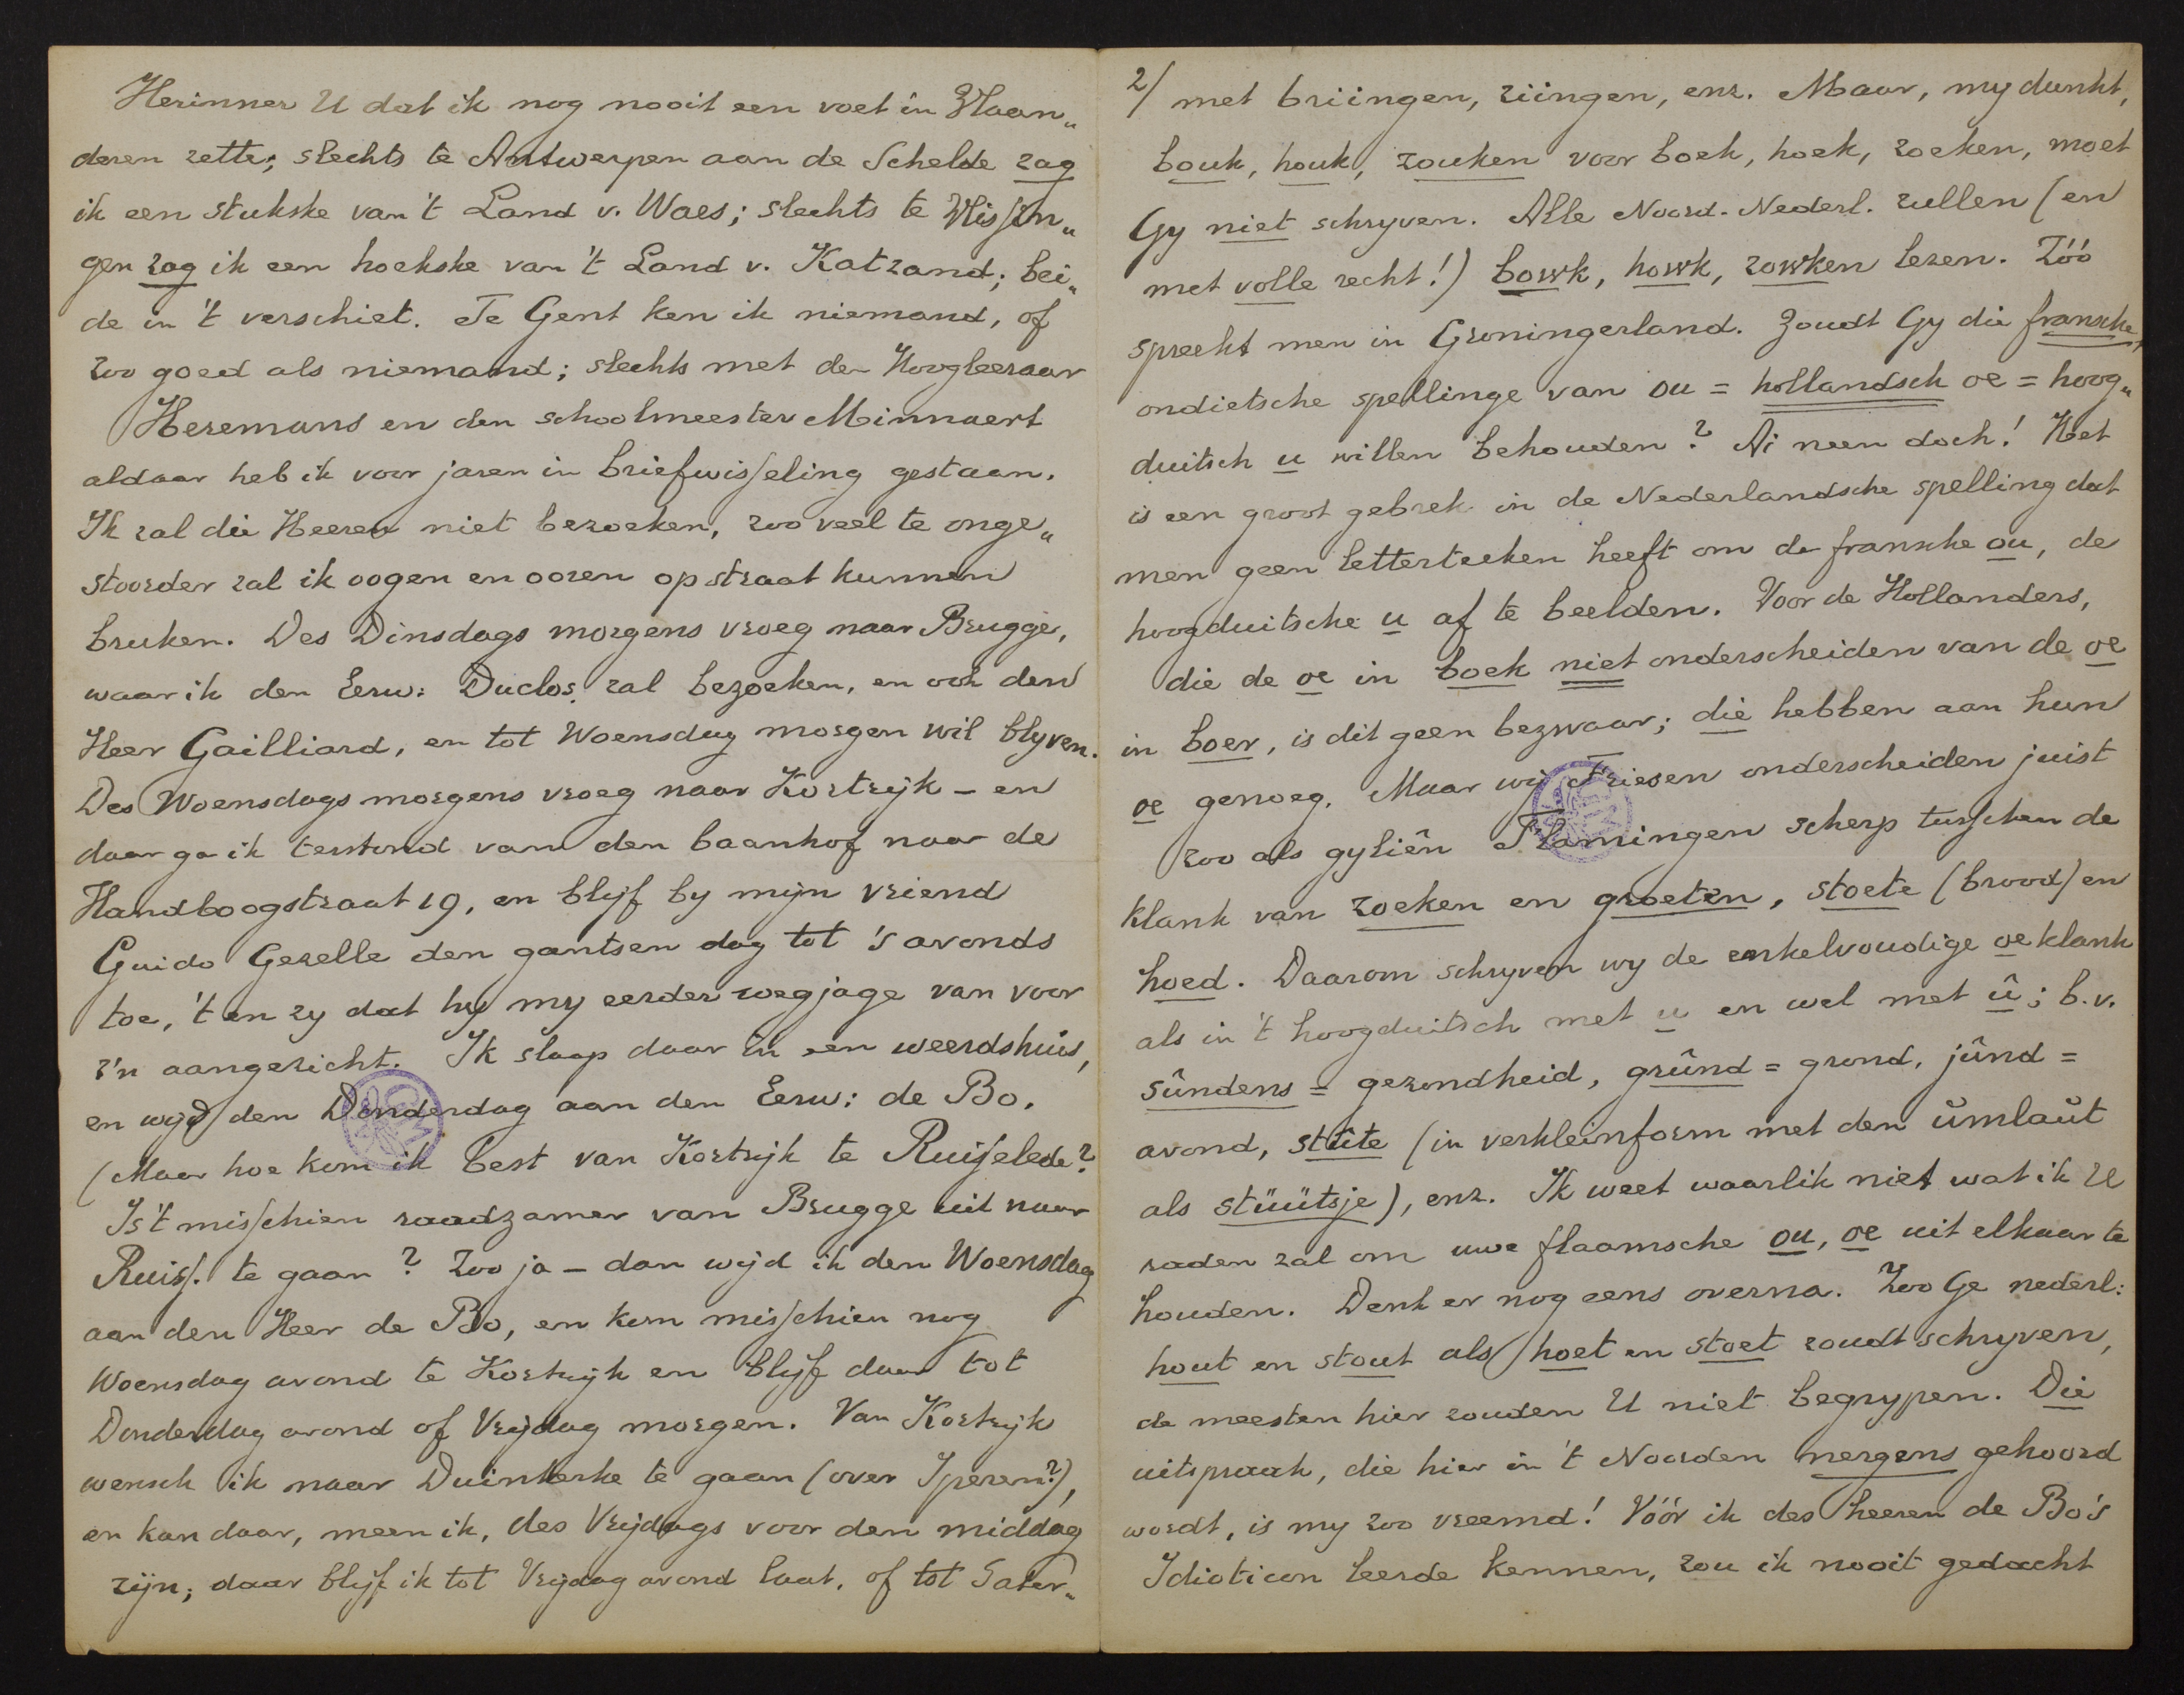 Herinner U dat ik nog nooit een voet in Vlaan„
deren zette; slechts te Antwerpen aan de Schelde zag
ik een stukske van 't Land v. Waes; slechts te Vlissin„
gen zag ik een hoekske van 't Land v. Katzand; bei„
de in 't verschiet. Te Gent ken ik niemand, of
zoo goed als niemand; slechts met den Hoogleeraar
Heremans en den schoolmeester Minnaert
aldaar heb ik voor jaren in briefwisseling gestaan.
Ik zal die Heeren niet bezoeken, zoo veel te onge„
stoorder zal ik oogen en ooren op straat kunnen
bruken. Des Dinsdags morgens vroeg naar Brugge,
waar ik den Eerw: Duclos zal bezoeken, en ook den
Heer Gailliard, en tot Woensdag morgen wil blyven.
Des Woensdags morgens vroeg naar Kortrijk – en
daar ga ik terstond van den baanhof naar de
Handboogstraat 19, en blijf by mijn vriend
Guido Gezelle den gantsen dag tot 's avonds
toe, 't en zy dat hy my eerder wegjage van voor
z'n aangezicht. Ik slaap daar in een weerdshuis,
en wijd den Donderdag aan den Eerw: de Bo.
(Maar hoe kom ik best van Kortrijk te Ruiselede?
Is 't misschien raadzamer van Brugge uit naar
Ruiss. te gaan? Zoo ja – dan wijd ik den Woensdag
aan den Heer de Bo, en kom misschien nog
Woensdag avond te Kortrijk en blijf daar tot
Donderdag avond of Vrijdag morgen. Van Kortrijk
wensch ik naar Duinkerke te gaan (over Iperen?),
en kan daar, meen ik, des Vrijdags voor den middag
zijn; daar blijf ik tot Vrijdag avond laat, of tot Sater„
2/ met briingen, ziingen, enz. Maar, my dunkt,
bouk, houk, zouken voor boek, hoek, zoeken, moet
Gy niet schryven. Alle Noord-Nederl. zullen (en
met volle recht!) bowk, howk, zowken lezen. Zóó
spreekt men in Groningerland. Zoudt Gy die fransche,
ondietsche spellinge van ou = hollandsch oe = hoog„
duitsch u willen behouden? Ai neen doch! Het
is een groot gebrek in de Nederlandsche spelling dat
men geen letterteeken heeft om de fransche ou, de
hoogduitsche u af te beelden. Voor de Hollanders,
die de oe in boek niet onderscheiden van de oe
in boer, is dit geen bezwaar; die hebben aan hun
oe genoeg. Maar wij Friesen onderscheiden juist
zoo als gyliên Flamingen scherp tusschen de
klank van zoeken en groeten, stoete (brood) en
hoed. Daarom schryven wy de enkelvoudige oe klank
als in 't hoogduitsch met u en wel met û; b.v.
sûndens = gezondheid, grûnd = grond, jûnd =
avond, stûte (in verkleinform met den ümlaüt
als stüütsje), enz. Ik weet waarlik niet wat ik U
raden zal om uwe flaamsche ou, oe uit elkaar te
houden. Denk er nog eens overna. Zoo Ge nederl:
hout en stout als hoet en stoet zoudt schryven,
de meesten hier zouden U niet begrypen. Die
uitspraak, die hier in 't Noorden nergens gehoord
wordt, is my zoo vreemd! Vóór ik des heeren de Bo's
Idioticon leerde kennen, zou ik nooit gedacht